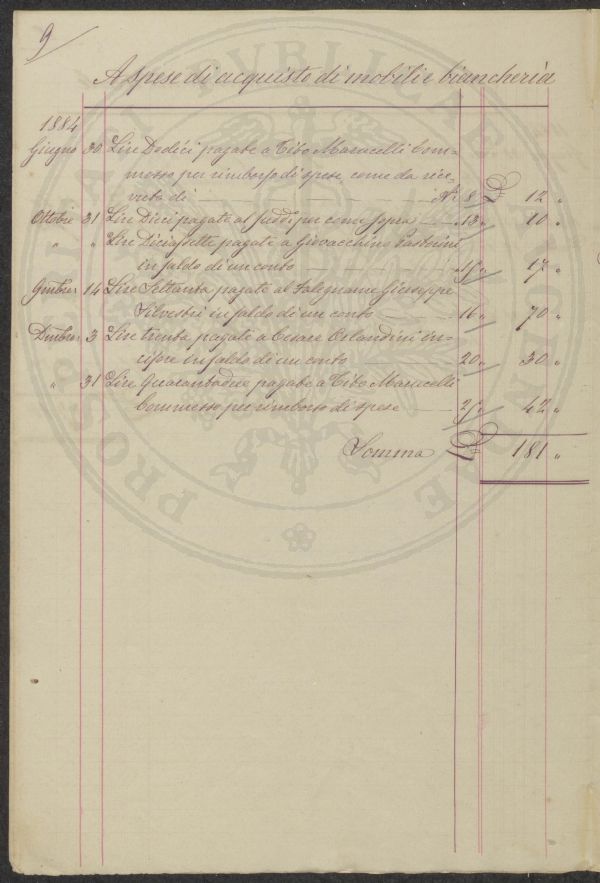 9
A spese di acquisto di mobili e biancheria
1884
Giugno 30 Lire Dodici pagate a Tito Marucelli Com=
messo per rimborso di spese, come da rice=
vuta di N. 8 £ 12 "
Ottobre 31 Lire Dieci pagate al per come sopra 13 " 10 "
" " Lire Diciassette pagate a Giovacchino Pastorini
in saldo di un conto 15 " 17 "
9mbre 14 Lire Settanta pagate al falegname Giuseppe
Silvestri in saldo di un conto 16 " 70 "
Dmbre 3 Lire trenta pagate a Cesare Orlandini in=
cisore in saldo di un conto 20 " 30 "
" 31 Lire Quarantadue pagate a Tito Marucelli
Commesso per rimborso di spese 25 " 42 "
Somma £ 181 "
PROSPERITATI PVBLICAE AVGENDAE